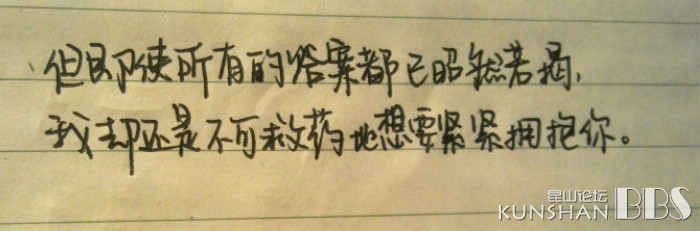 但即使所有的答案都已昭然若揭，
我却还是不可救药地想要紧紧拥抱你。
昆山论坛
KUNSHAN BBS